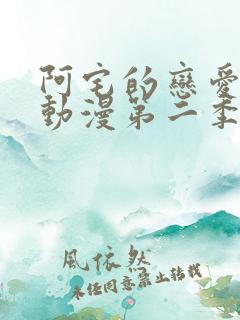 阿宅的戀愛
動漫第二季
風依然
未任同意禁止转载